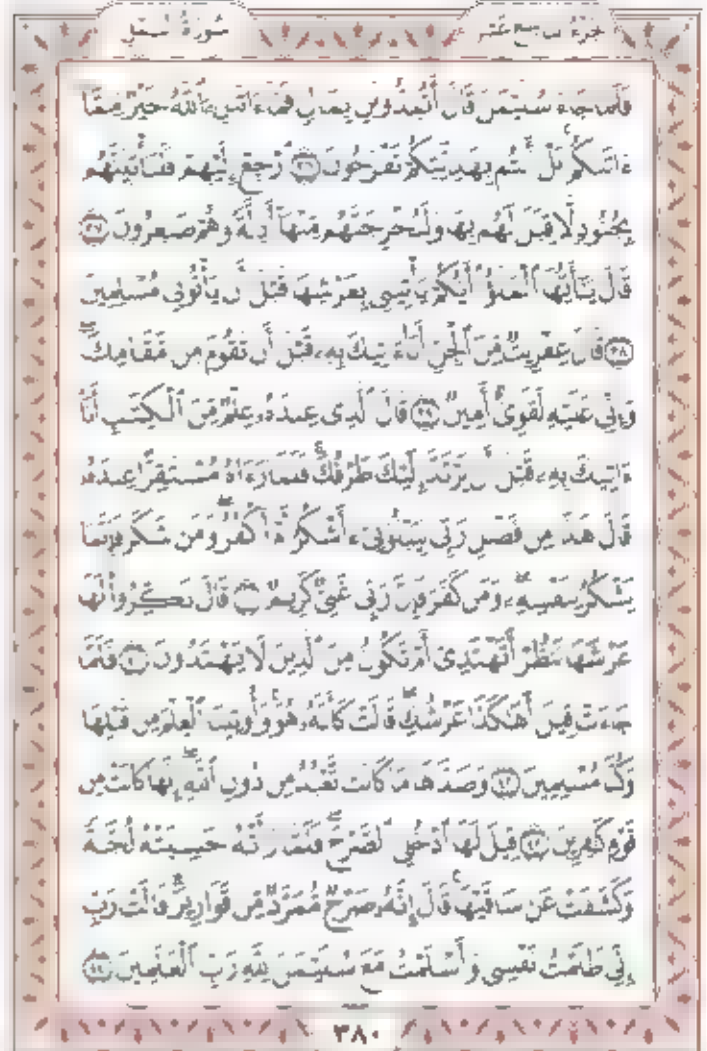 سُورَةُ النَّمْلِ
فَلَمَّا جَآءَ سُلَيْمَٰنَ قَالَ أَتُمِدُّونَنِ بِمَالٍ فَمَآ ءَاتَىٰنِۦَ ٱللَّهُ خَيْرٌ مِّمَّآ
ءَاتَىٰكُم بَلْ أَنتُم بِهَدِيَّتِكُمْ تَفْرَحُونَ ٣٦ ٱرْجِعْ إِلَيْهِمْ فَلَنَأْتِيَنَّهُم
بِجُنُودٍ لَّا قِبَلَ لَهُم بِهَا وَلَنُخْرِجَنَّهُم مِّنْهَآ أَذِلَّةً وَهُمْ صَٰغِرُونَ ٣٧
قَالَ يَٰٓأَيُّهَا ٱلْمَلَؤُا۟ أَيُّكُمْ يَأْتِينِى بِعَرْشِهَا قَبْلَ أَن يَأْتُونِى مُسْلِمِينَ
٣٨ قَالَ عِفْرِيتٌ مِّنَ ٱلْجِنِّ أَنَا۠ ءَاتِيكَ بِهِۦ قَبْلَ أَن تَقُومَ مِن مَّقَامِكَ
وَإِنِّى عَلَيْهِ لَقَوِىٌّ أَمِينٌ ٣٩ قَالَ ٱلَّذِى عِندَهُۥ عِلْمٌ مِّنَ ٱلْكِتَٰبِ أَنَا۠
ءَاتِيكَ بِهِۦ قَبْلَ أَن يَرْتَدَّ إِلَيْكَ طَرْفُكَ فَلَمَّا رَءَاهُ مُسْتَقِرًّا عِندَهُۥ
قَالَ هَٰذَا مِن فَضْلِ رَبِّى لِيَبْلُوَنِىٓ ءَأَشْكُرُ أَمْ أَكْفُرُ وَمَن شَكَرَ فَإِنَّمَا
يَشْكُرُ لِنَفْسِهِۦ وَمَن كَفَرَ فَإِنَّ رَبِّى غَنِىٌّ كَرِيمٌ ٤٠ قَالَ نَكِّرُوا۟ لَهَا
عَرْشَهَا نَنظُرْ أَتَهْتَدِىٓ أَمْ تَكُونُ مِنَ ٱلَّذِينَ لَا يَهْتَدُونَ ٤١ فَلَمَّا
جَآءَتْ قِيلَ أَهَٰكَذَا عَرْشُكِ قَالَتْ كَأَنَّهُۥ هُوَ وَأُوتِينَا ٱلْعِلْمَ مِن قَبْلِهَا
وَكُنَّا مُسْلِمِينَ ٤٢ وَصَدَّهَا مَا كَانَت تَّعْبُدُ مِن دُونِ ٱللَّهِ إِنَّهَا كَانَتْ مِن
قَوْمٍ كَٰفِرِينَ ٤٣ قِيلَ لَهَا ٱدْخُلِى ٱلصَّرْحَ فَلَمَّا رَأَتْهُ حَسِبَتْهُ لُجَّةً
وَكَشَفَتْ عَن سَاقَيْهَا قَالَ إِنَّهُۥ صَرْحٌ مُّمَرَّدٌ مِّن قَوَارِيرَ قَالَتْ رَبِّ
إِنِّى ظَلَمْتُ نَفْسِى وَأَسْلَمْتُ مَعَ سُلَيْمَٰنَ لِلَّهِ رَبِّ ٱلْعَٰلَمِينَ ٤٤
٣٨٠